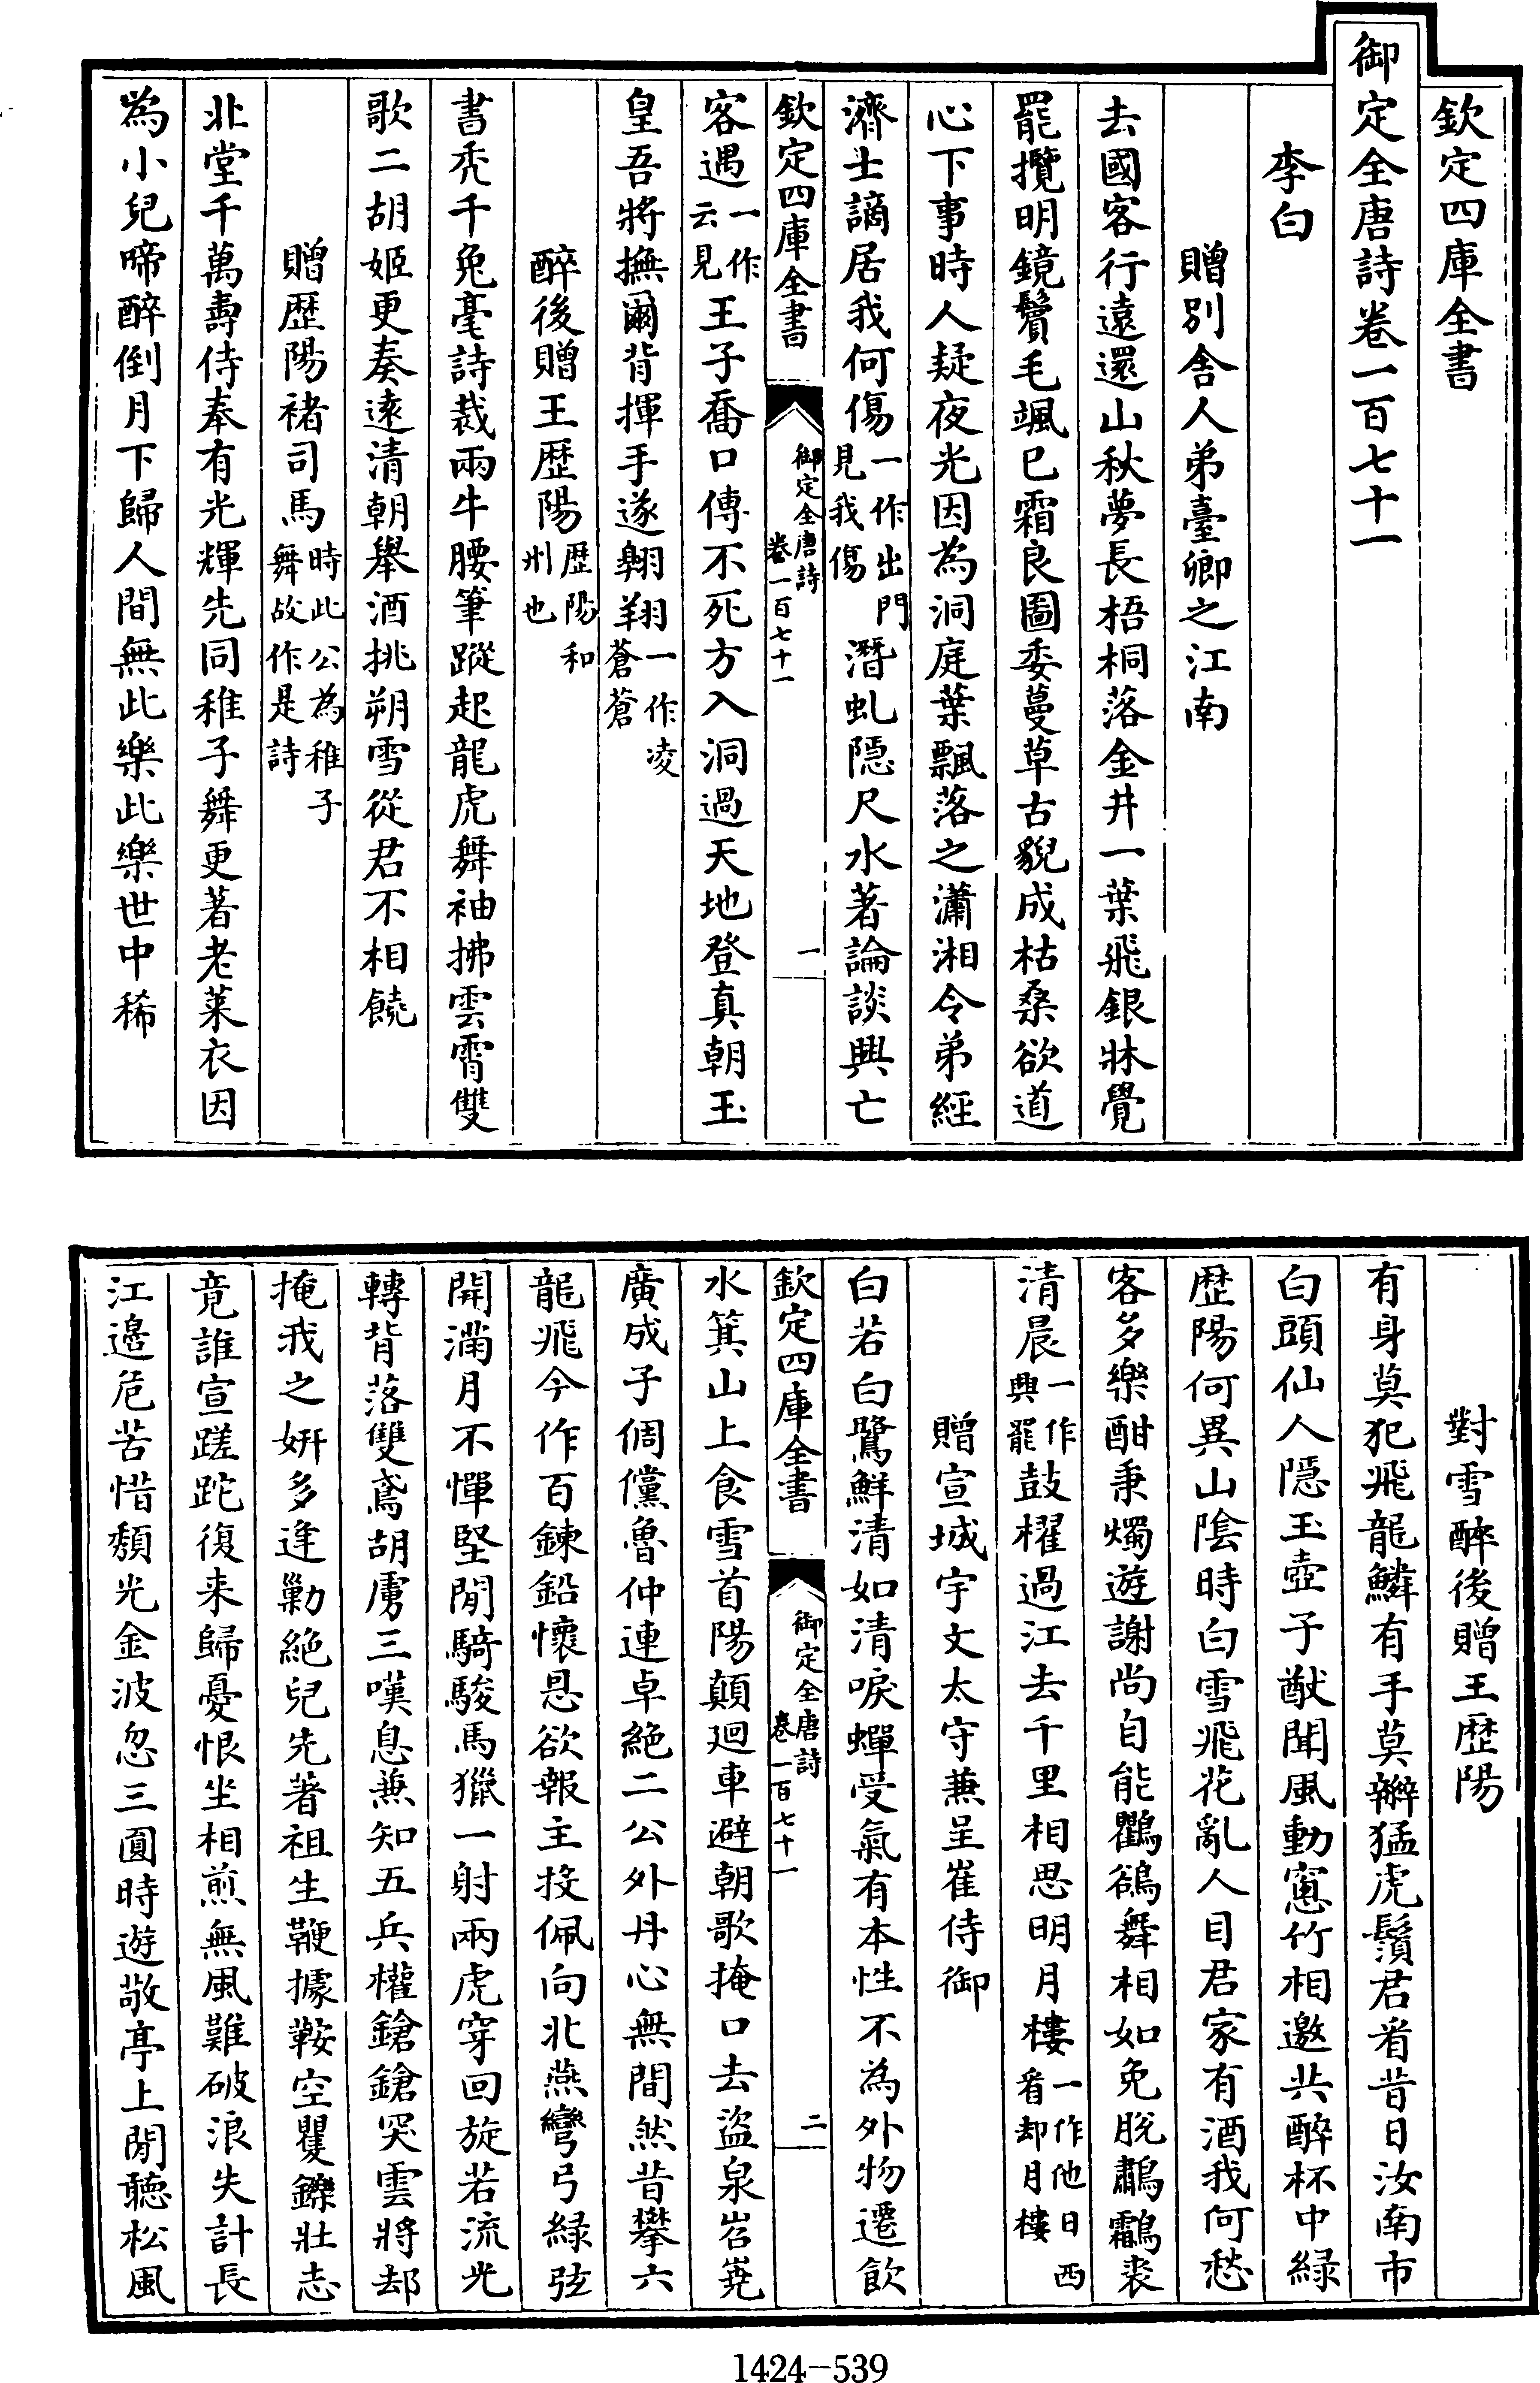 欽定四庫全書
御定全唐詩卷一百七十一
李白
贈別舍人弟臺卿之江南
去國客行遠還山秋夢長梧桐落金井一葉飛銀牀覺
罷攬明鏡鬢毛颯已霜良圖委蔓草古貌成枯桑欲道
心下事時人疑夜光因為洞庭葉飄落之瀟湘令弟經
濟士謫居我何傷一作出門見我傷潛虬隱尺水著論談興亡
欽定四庫全書 御定全唐詩卷一百七十一 一
客遇一作云見王子喬口傳不死方入洞過天地登真朝玉
皇吾將撫爾背揮手遂翱翔一作凌蒼蒼
醉後贈王歴陽歴陽和州也
書禿千兔毫詩裁兩牛腰筆蹤起龍虎舞袖拂雲霄雙
歌二胡姬更奏遠清朝舉酒挑朔雪從君不相饒
贈歴陽褚司馬時此公為稚子舞故作是詩
北堂千萬壽侍奉有光輝先同稚子舞更著老萊衣因
為小兒啼醉倒月下歸人間無此樂此樂世中稀
對雪醉後贈王歴陽
有身莫犯飛龍鱗有手莫辮猛虎鬚君看昔日汝南市
白頭仙人隱玉壺子猷聞風動窻竹相邀共醉杯中緑
歴陽何異山陰時白雪飛花亂人目君家有酒我何愁
客多樂酣秉燭遊謝尚自能鸜鵒舞相如免脫鷫鸘裘
清晨一作興罷鼓櫂過江去千里相思明月樓一作他日西看却月樓
贈宣城宇文太守兼呈崔侍御
白若白鷺鮮清如清唳蟬受氣有本性不為外物遷飲
欽定四庫全書 御定全唐詩卷一百七十一 二
水箕山上食雪首陽顛廻車避朝歌掩口去盜泉岧嶤
廣成子倜儻魯仲連卓絶二公外丹心無間然昔攀六
龍飛今作百鍊鉛懷恩欲報主投佩向北燕彎弓緑弦
開滿月不憚堅閒騎駿馬獵一射兩虎穿回旋若流光
轉背落雙鳶胡虜三嘆息兼知五兵權鎗鎗突雲將却
掩我之妍多逢勦絶兒先著祖生鞭據鞍空矍鑠壯志
竟誰宣蹉跎復来歸憂恨坐相煎無風難破浪失計長
江邉危苦惜頹光金波忽三圓時遊敬亭上閒聽松風
1424—539